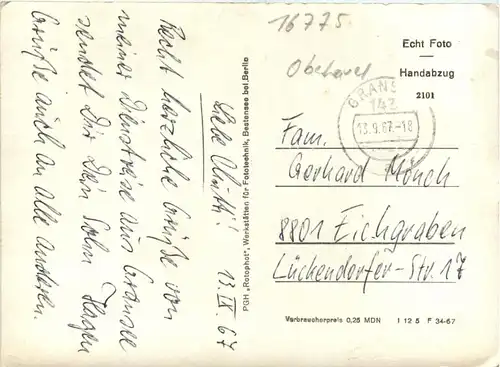 16775
Oberhavel
Echt Foto
Handabzug
2101
GRANS
143
13.9.67.-18
Liebe Mutti! 13. IX. 67
Recht herzliche Grüße von
meiner Dienstreise aus Gransee
sendet Dir Dein Sohn Hagen
Grüße auch an alle anderen.
PGH „Rotophot", Werkstätten für Fototechnik, Bestensee bei Berlin
Fam.
Gerhard Mönch
8801 Eichgraben
Lückendorfer-Str. 17
Verbraucherpreis 0,25 MDN I 12 5 F 34-67